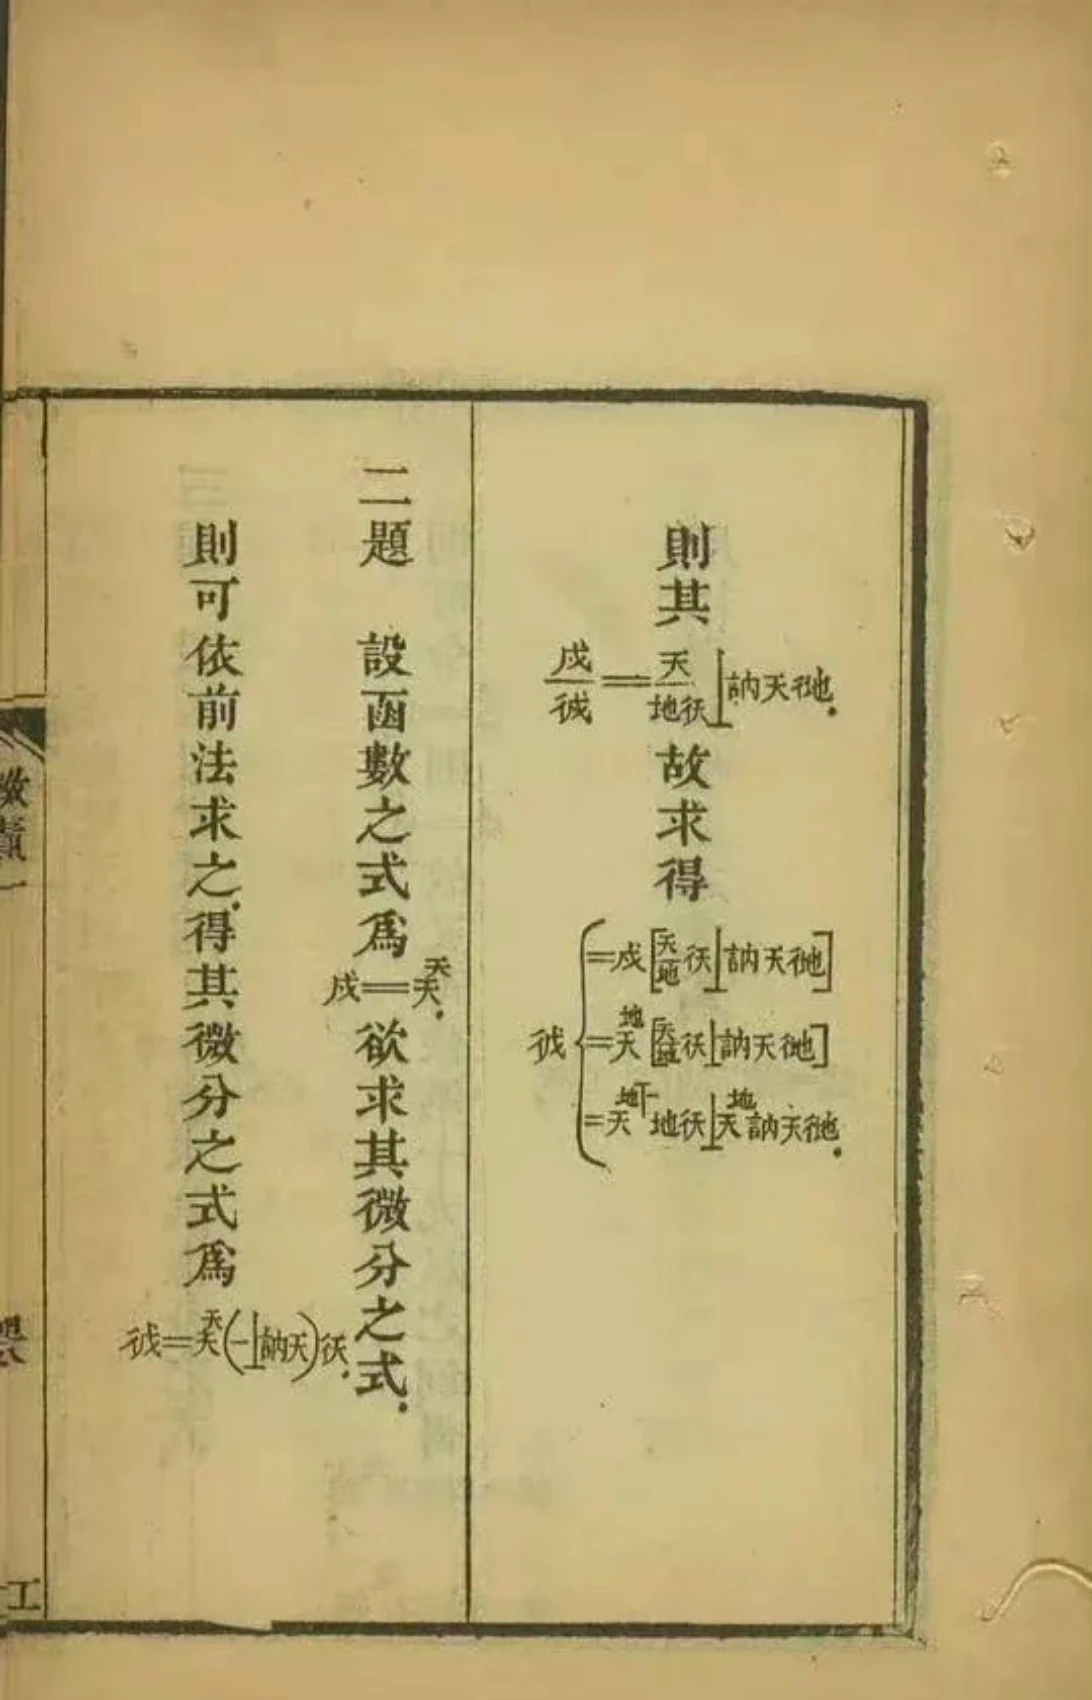 則其
戍/彳戍=天/地彳天⊥訥天彳地.
故求得
彳戍{=戍[天/地彳天⊥訥天彳地]
=天^地[天/地彳天⊥訥天彳地]
=天^地㆒地彳天⊥天^地訥天彳地.
二題 設函數之式爲
戍=天^天.
欲求其微分之式.
則可依前法求之.得其微分之式爲
彳戍=天^天(一⊥訥天)彳天.